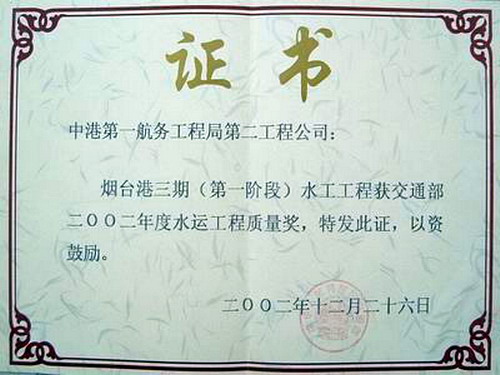 证书
中港第一航务工程局第二工程公司：
烟台港三期（第一阶段）水工工程获交通部
二〇〇二年度水运工程质量奖，特发此证，以资
鼓励。
二〇〇二年十二月二十六日